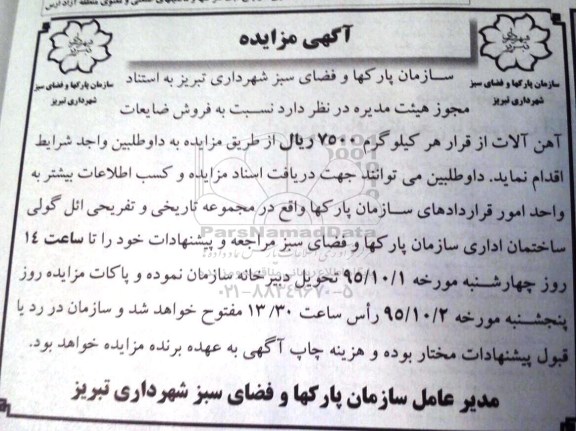 آگهی مزایده
سازمان پارکها و فضای سبز
شهرداری تبریز
سازمان پارکها و فضای سبز
شهرداری تبریز
سازمان پارکها و فضای سبز شهرداری تبریز به استناد
مجوز هیئت مدیره در نظر دارد نسبت به فروش ضایعات
آهن آلات از قرار هر کیلو گرم ۷۵۰۰ ریال از طریق مزایده به داوطلبین واجد شرایط
اقدام نماید. داوطلبین می توانند جهت دریافت اسناد مزایده و کسب اطلاعات بیشتر به
واحد امور قراردادهای سازمان پارکها واقع در مجموعه تاریخی و تفریحی ائل گولی
ساختمان اداری سازمان پارکها و فضای سبز مراجعه و پیشنهادات خود را تا ساعت ۱۴
روز چهارشنبه مورخه ۹۵/۱۰/۱ تحویل دبیرخانه سازمان نموده و پاکات مزایده روز
پنجشنبه مورخه ۹۵/۱۰/۲ رأس ساعت ۱۳/۳۰ مفتوح خواهد شد و سازمان در رد یا
قبول پیشنهادات مختار بوده و هزینه چاپ آگهی به عهده برنده مزایده خواهد بود.
مدیر عامل سازمان پارکها و فضای سبز شهرداری تبریز
ParsNamadData
۰۲۱-۸۸۳۴۹۶۷۰-۵